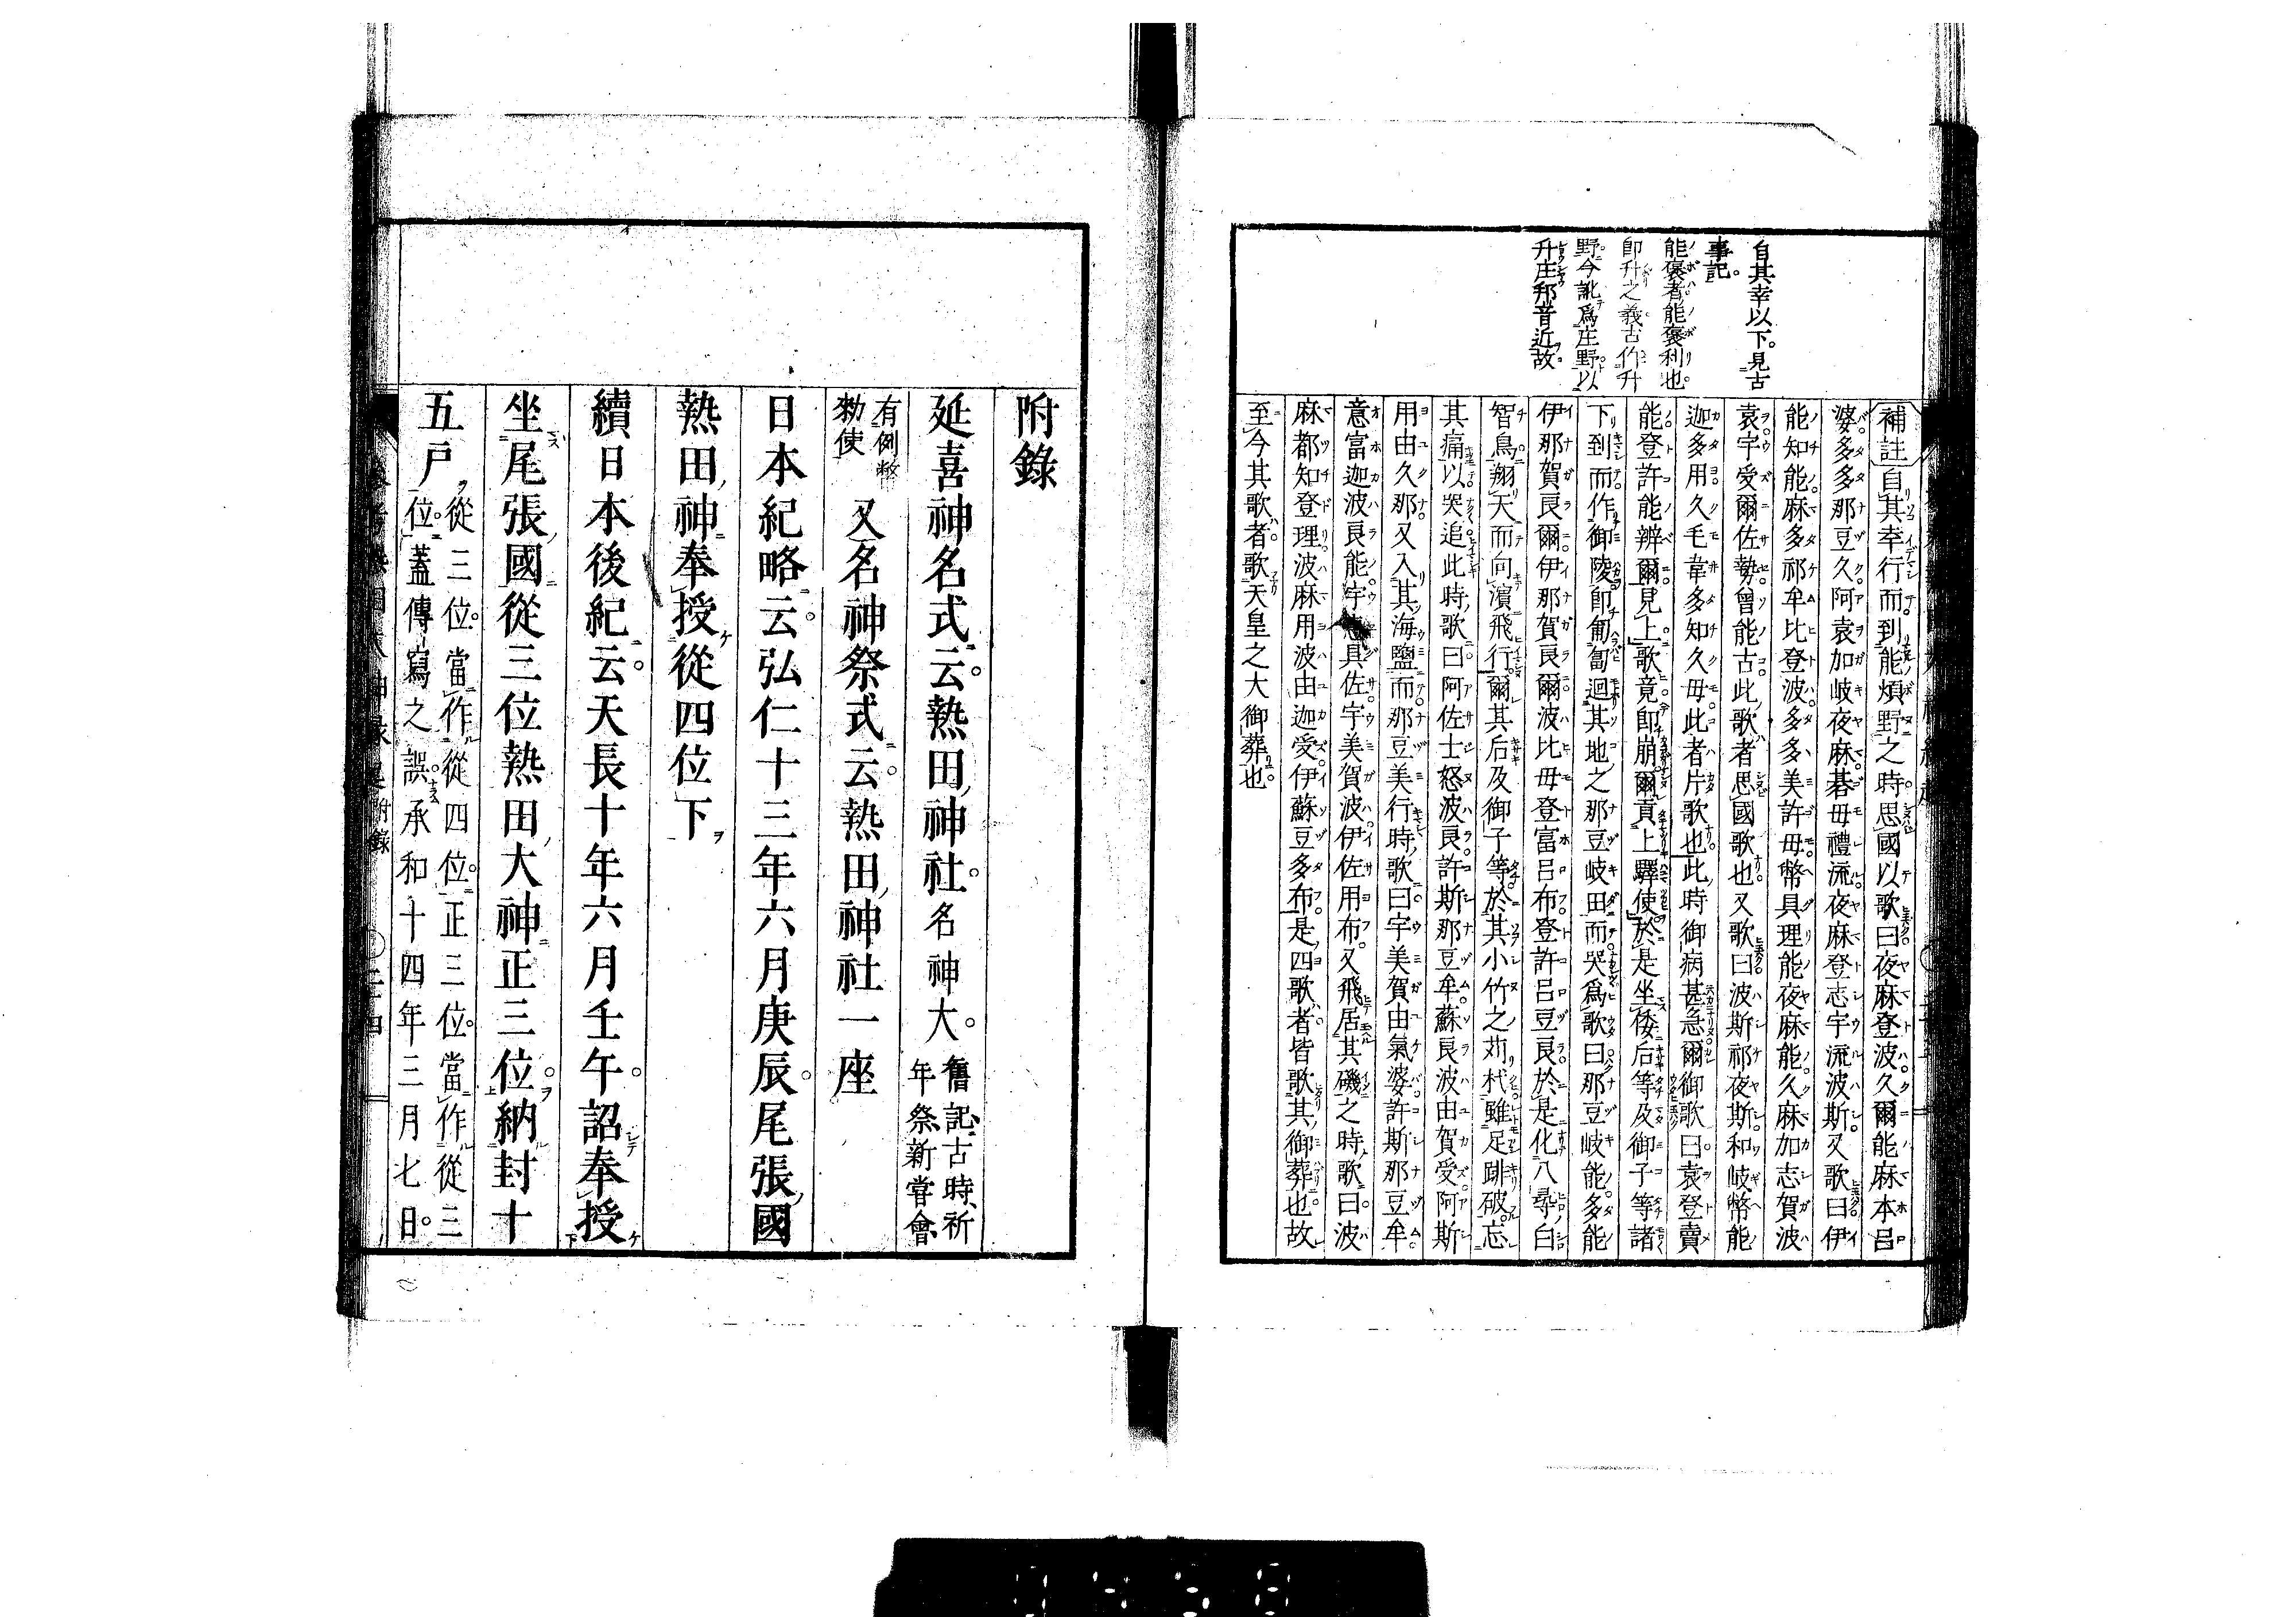 自其幸以下。見古
事記。
能褒者能褒利也
卽升之義古作升
野今訛爲庄野以
升庄邦音近故
補註自其幸行而。到能煩野之時。思國以歌曰夜麻登波久爾能麻本呂
婆多多那豆久。阿袁加岐夜麻碁毋禮流。夜麻登志宇流波斯。又歌曰伊
能知能麻多祁牟比登波。多多美許毋幣具理能夜麻能久麻加志賀波
袁宇受爾佐勢曾能古。此歌者思國歌也又歌曰波斯祁夜斯和岐幣能
迦多用久毛韋多知久毋。此者片歌也此時御病甚急爾御歌曰袁登賣
能登許能辨爾見上歌竟卽崩。爾貢上驛使於是坐倭后等及御子等諸
下到而作御陵卽匍匐迴其地之那豆岐田而哭爲歌曰那豆岐能多能
伊那賀良爾。伊那賀良爾波比毋登富呂布登許呂豆良。於是化八尋白
智鳥翔天而向濱飛行。爾其后及御子等。於其小竹之苅杙雖足䠊破。忘
其痛以哭追此時歌曰阿佐士怒波良。許斯那豆牟。蘇良波由賀受。阿斯
用由久那。又入其海鹽而那豆美行時歌曰宇美賀由氣婆許斯那豆牟。
意富迦波良能宇惠具佐。宇美賀波伊佐用布。又飛居其磯之時歌曰波
麻都知登理。波麻用波由迦受。伊蘇豆多布。是四歌者皆歌其御葬也。故
至今其歌者。歌天皇之大御葬也
附錄
延喜神名式云。熱田神社。名神大。舊記古時祈
年祭新嘗會
有例幣
勅使 又名神祭式云。熱田神社一座
日本紀略云。弘仁十三年六月庚辰。尾張國
熱田神奉授從四位下
續日本後紀云。天長十年六月壬午。詔奉授
坐尾張國從三位熱田大神正三位。納封十
五戸從三位。當作從四位。正三位。當作從三
位。蓋傳寫之誤。承和十四年三月七日。
附錄